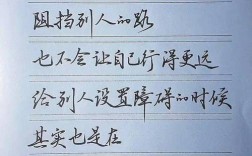 阻挡别人的路
也不会让自己行得更远
给别人设置障碍的时候
其实也是在